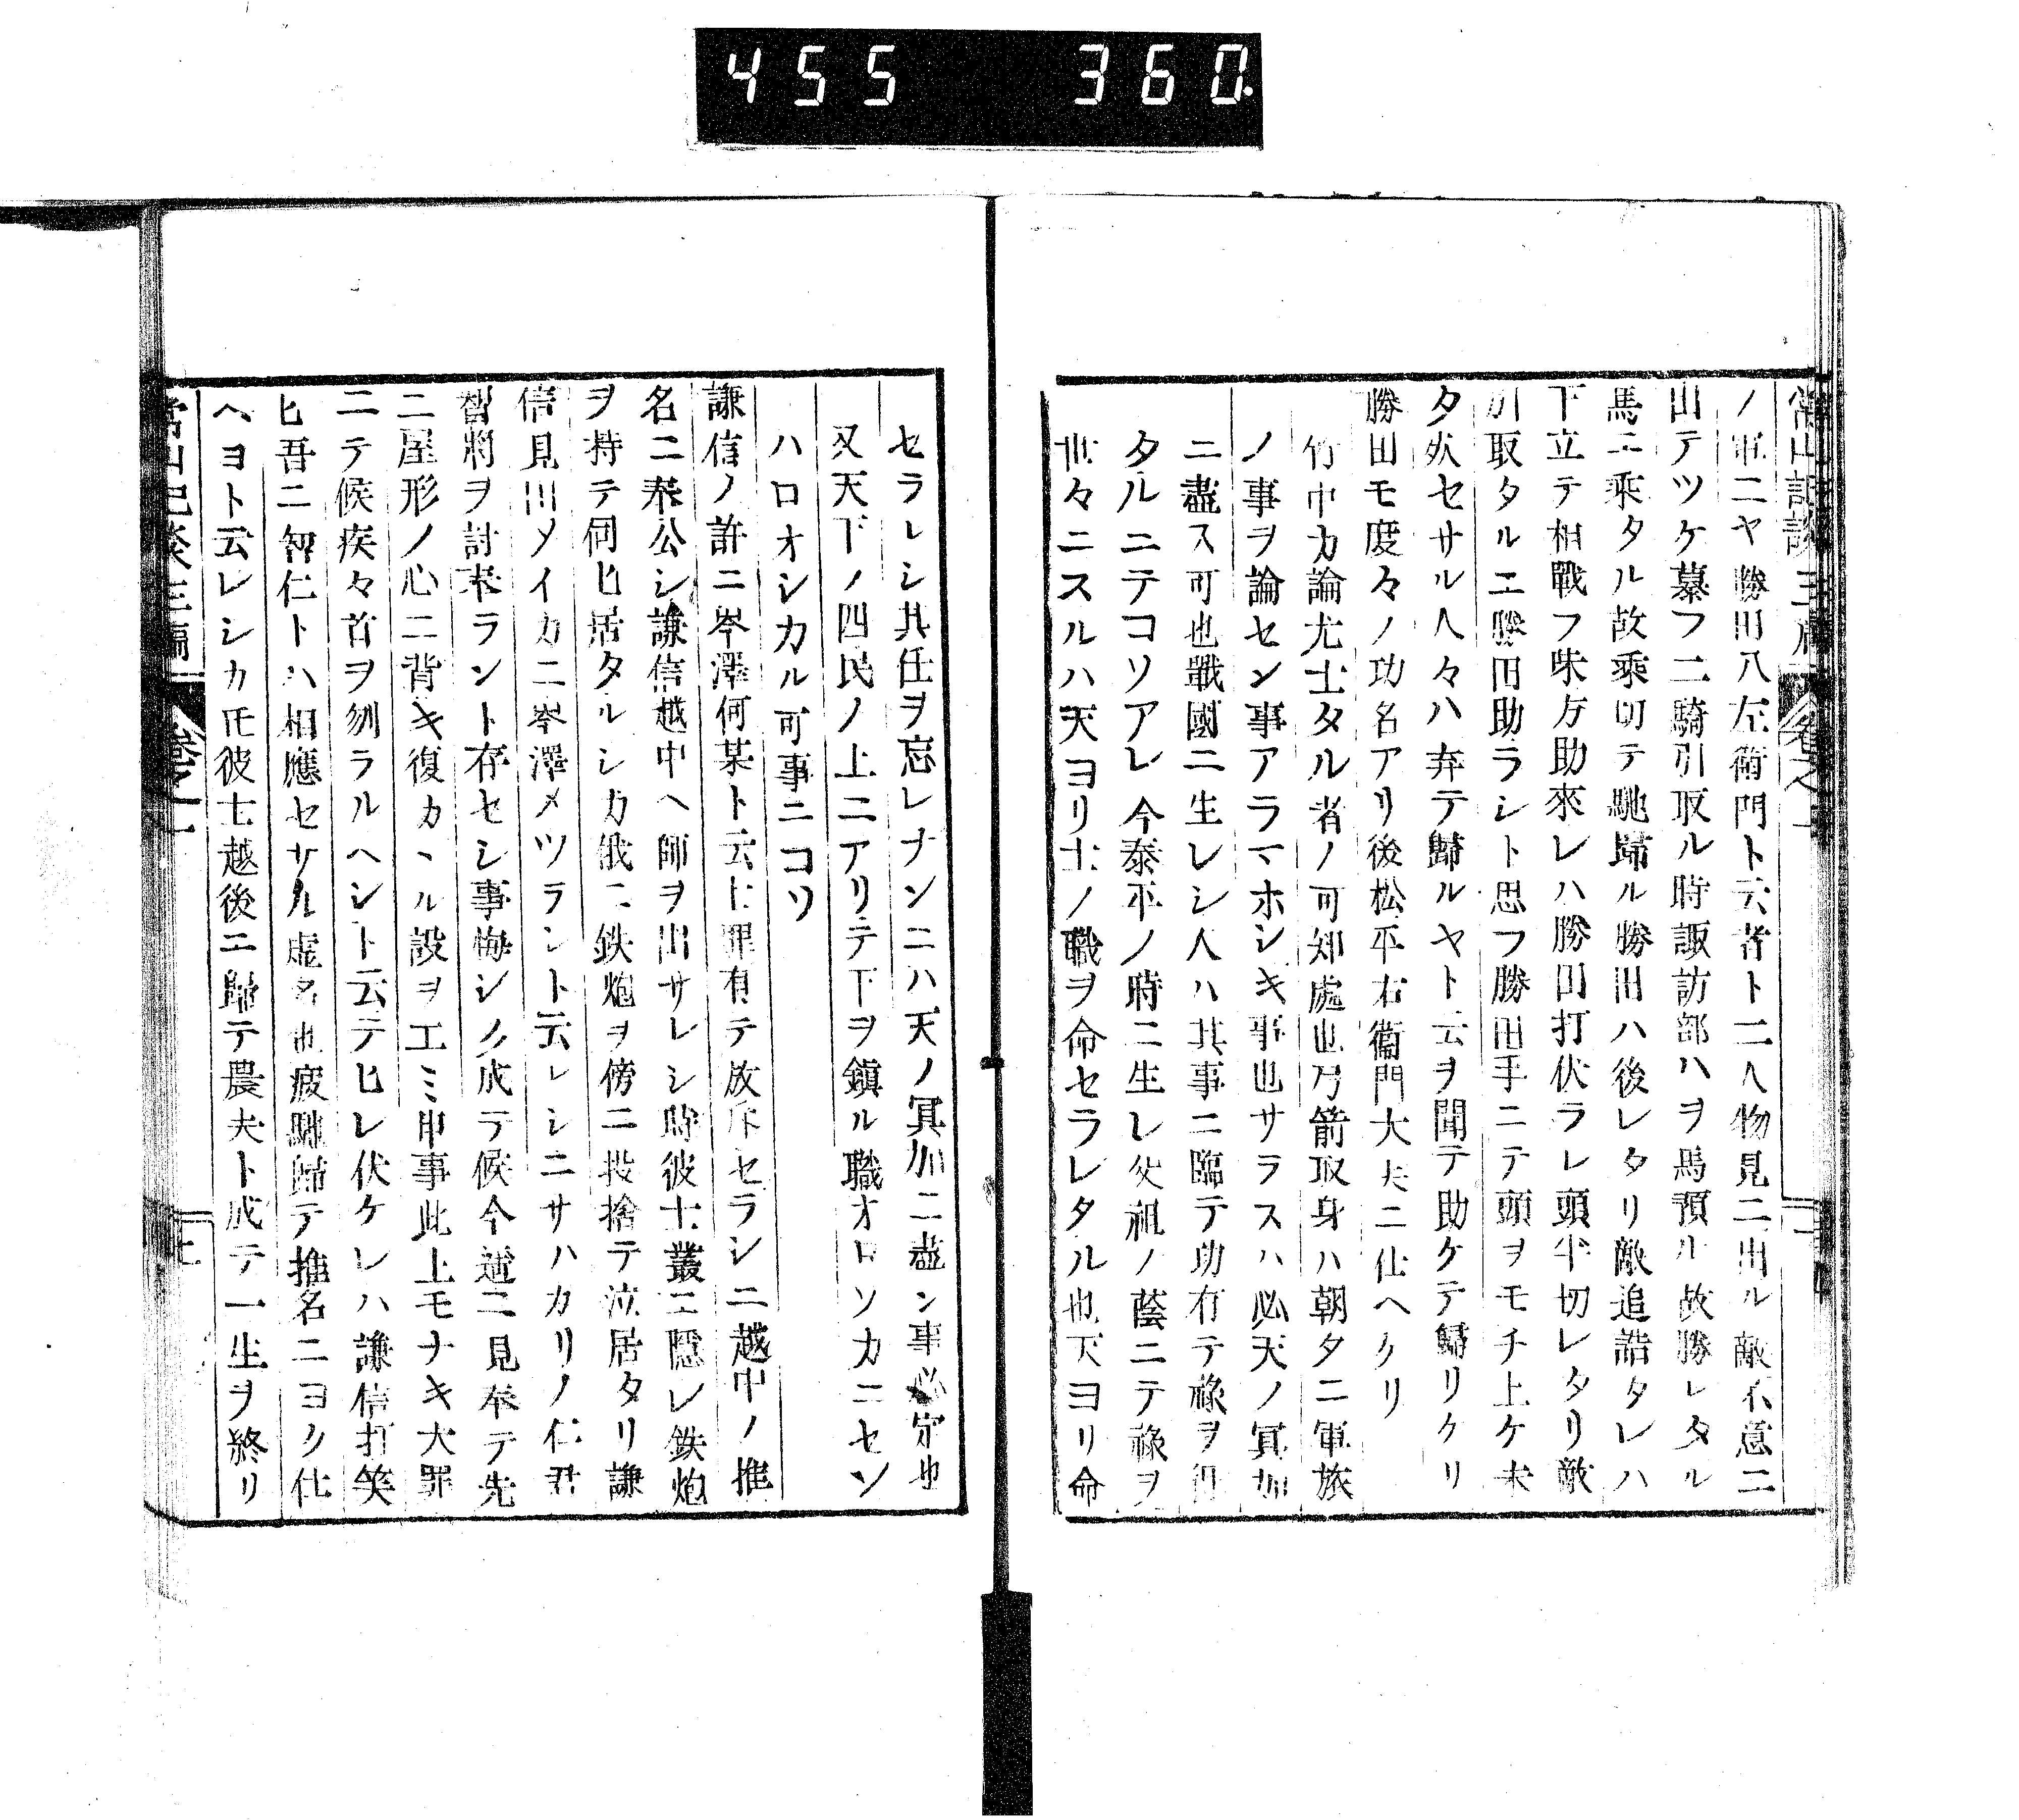 455 360
ノ軍ニヤ勝田八左衛門ト云者ト二人物見ニ出ル敵不意ニ
出テツケ慕フ二騎引取ル時諏訪部ハヲ馬預ル故勝レタル
馬ニ乘タル故乘切テ馳歸ル勝田ハ後レタリ敵追詰タレハ
下立テ相戰フ味方助來レハ勝田打伏ラレ頭半切レタリ敵
引取タルニ勝田助ラシト思フ勝田手ニテ頭ヲモチ上ケ未
タ死セサル人々ハ弃テ歸ルヤト云ヲ聞テ助ケテ歸リケリ
勝田モ度々ノ功名アリ後松平右衞門大夫ニ仕ヘケリ
竹中カ論尤士タル者ノ可知處也弓箭取身ハ朝夕ニ軍旅
ノ事ヲ論セン事アラマホシキ事也サラスハ必天ノ冥加
ニ盡ス可也戰國ニ生レシ人ハ其事ニ臨テ功有テ祿ヲ得
タルニテコソアレ今泰平ノ時ニ生レ父祖ノ蔭ニテ祿ヲ
世々ニスルハ天ヨリ士ノ職ヲ命セラレタル也天ヨリ命
セラレシ其任ヲ忘レナンニハ天ノ冥加ニ盡ン事必定也
又天下ノ四民ノ上ニアリテ下ヲ鎭ル職オロソカニセン
ハロオシカル可事ニコソ
謙信ノ許ニ岑澤何某ト云士罪有テ放斥セラシニ越中ノ推
名ニ奉公シ謙信越中ヘ師ヲ出サレシ時彼士叢ニ隱レ鉄炮
ヲ持テ伺ヒ居タルシカ俄ニ鉄炮ヲ傍ニ投捨テ泣居タリ謙
信見出メイカニ岑澤メツラント云レシニサハカリノ仁君
智將ヲ討奉ラント存セシ事悔シク成テ候今逆ニ見奉テ先
ニ屋形ノ心ニ背キ復カヽル設ヲ工ミ申事此上モナキ大罪
ニテ候疾々首ヲ刎ラルヘシト云テヒレ伏ケレハ謙信打笑
ヒ吾ニ智仁トハ相應セサル虚名也疲馳歸テ推名ニヨク仕
ヘヨト云レシカ𪜈彼士越後ニ歸テ農夫ト成テ一生ヲ終リ
常山紀談三編 卷之一